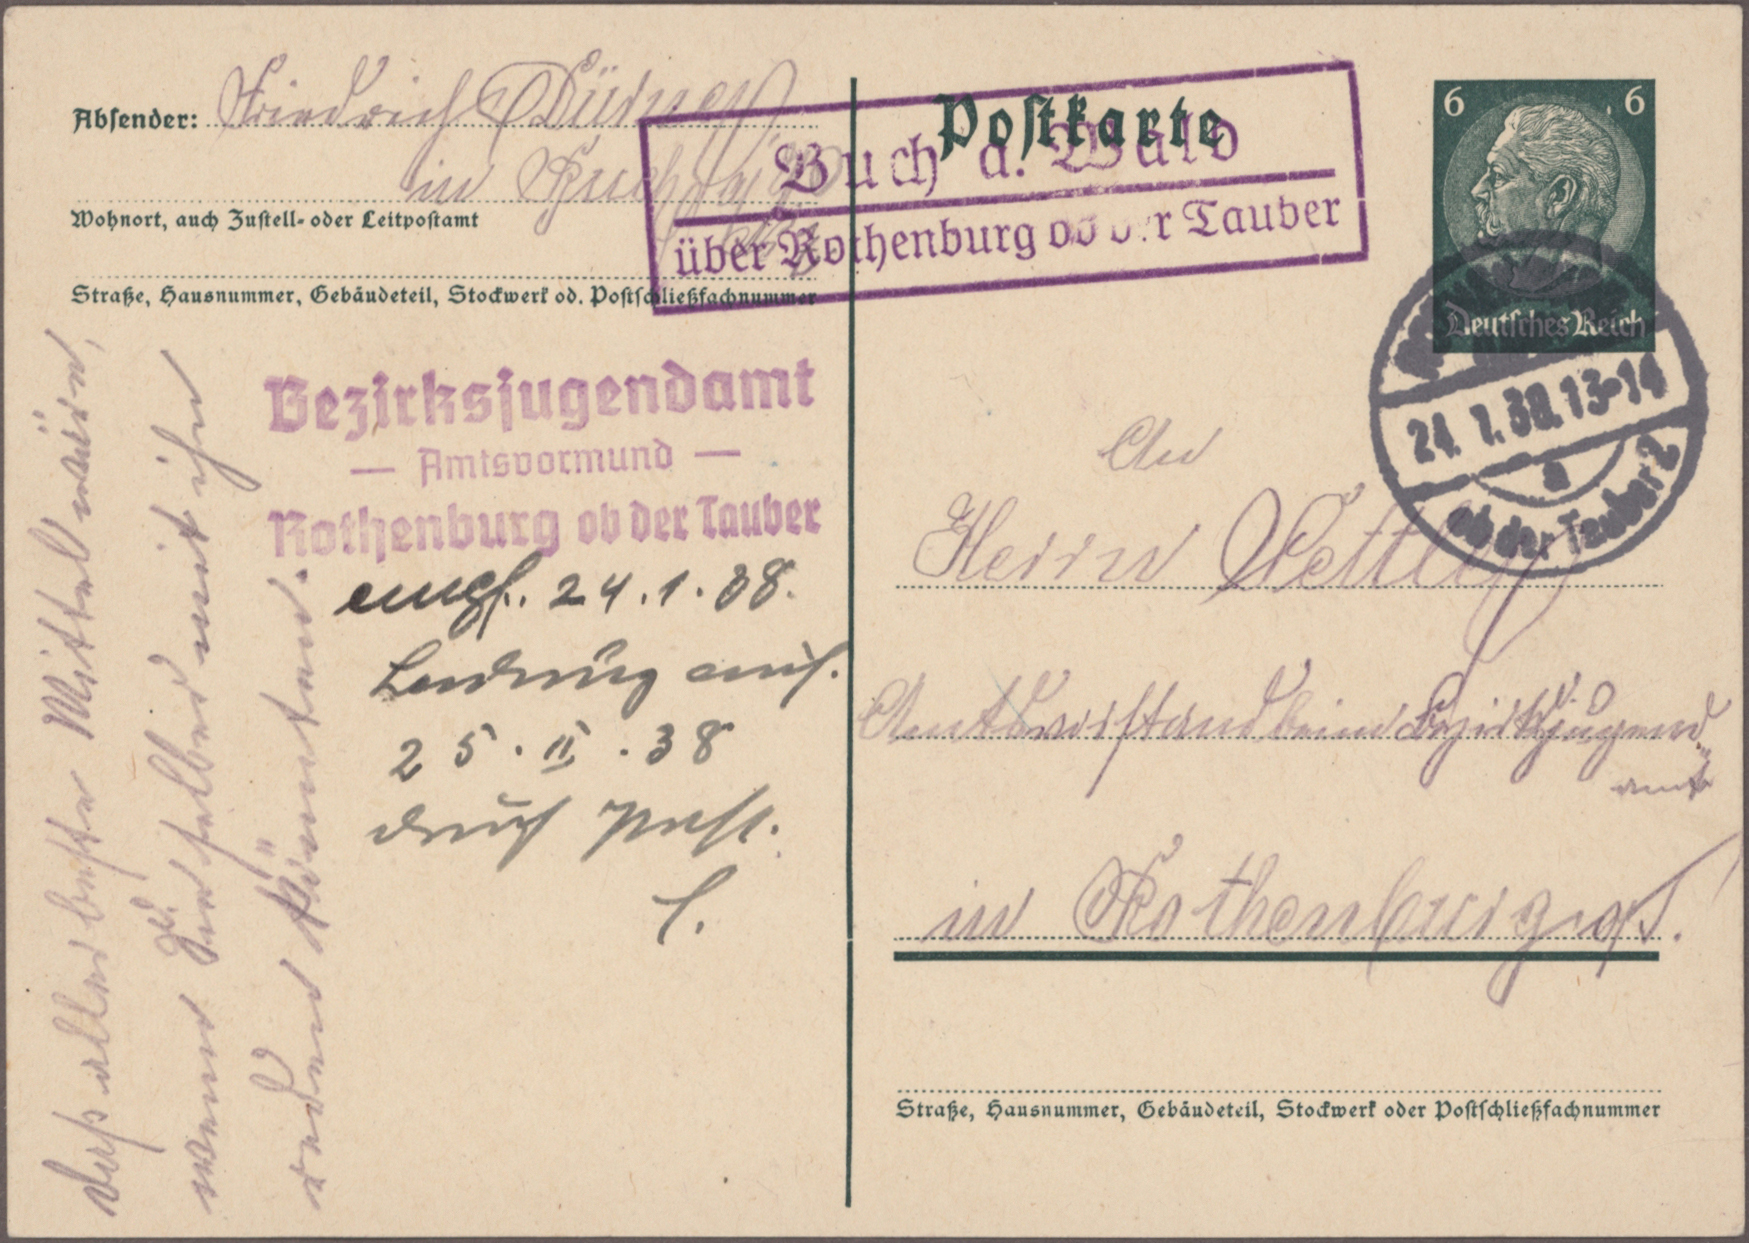 Absender: Friedrich
in
Wohnort, auch Zustell- oder Leitpostamt
Straße, Hausnummer, Gebäudeteil, Stockwerk od. Postschließfachnummer
Postkarte
Buch a. Wald
über Rothenburg ob der Tauber
6 6
Deutsches Reich
24. 1. 38. 13-14
a
ob der Tauber 2
Bezirksjugendamt
— Amtsvormund —
Rothenburg ob der Tauber
empf. 24.1.38.
Ladung auf.
25. II. 38
durch Post.
An
Herrn
Amtsvorstand beim Bezirksjugend
amt
in Rothenburg o/T.
Straße, Hausnummer, Gebäudeteil, Stockwerk oder Postschließfachnummer
daß aller beste Mittel wäre,
wenn Sie selber mit ihr
reden könnten.